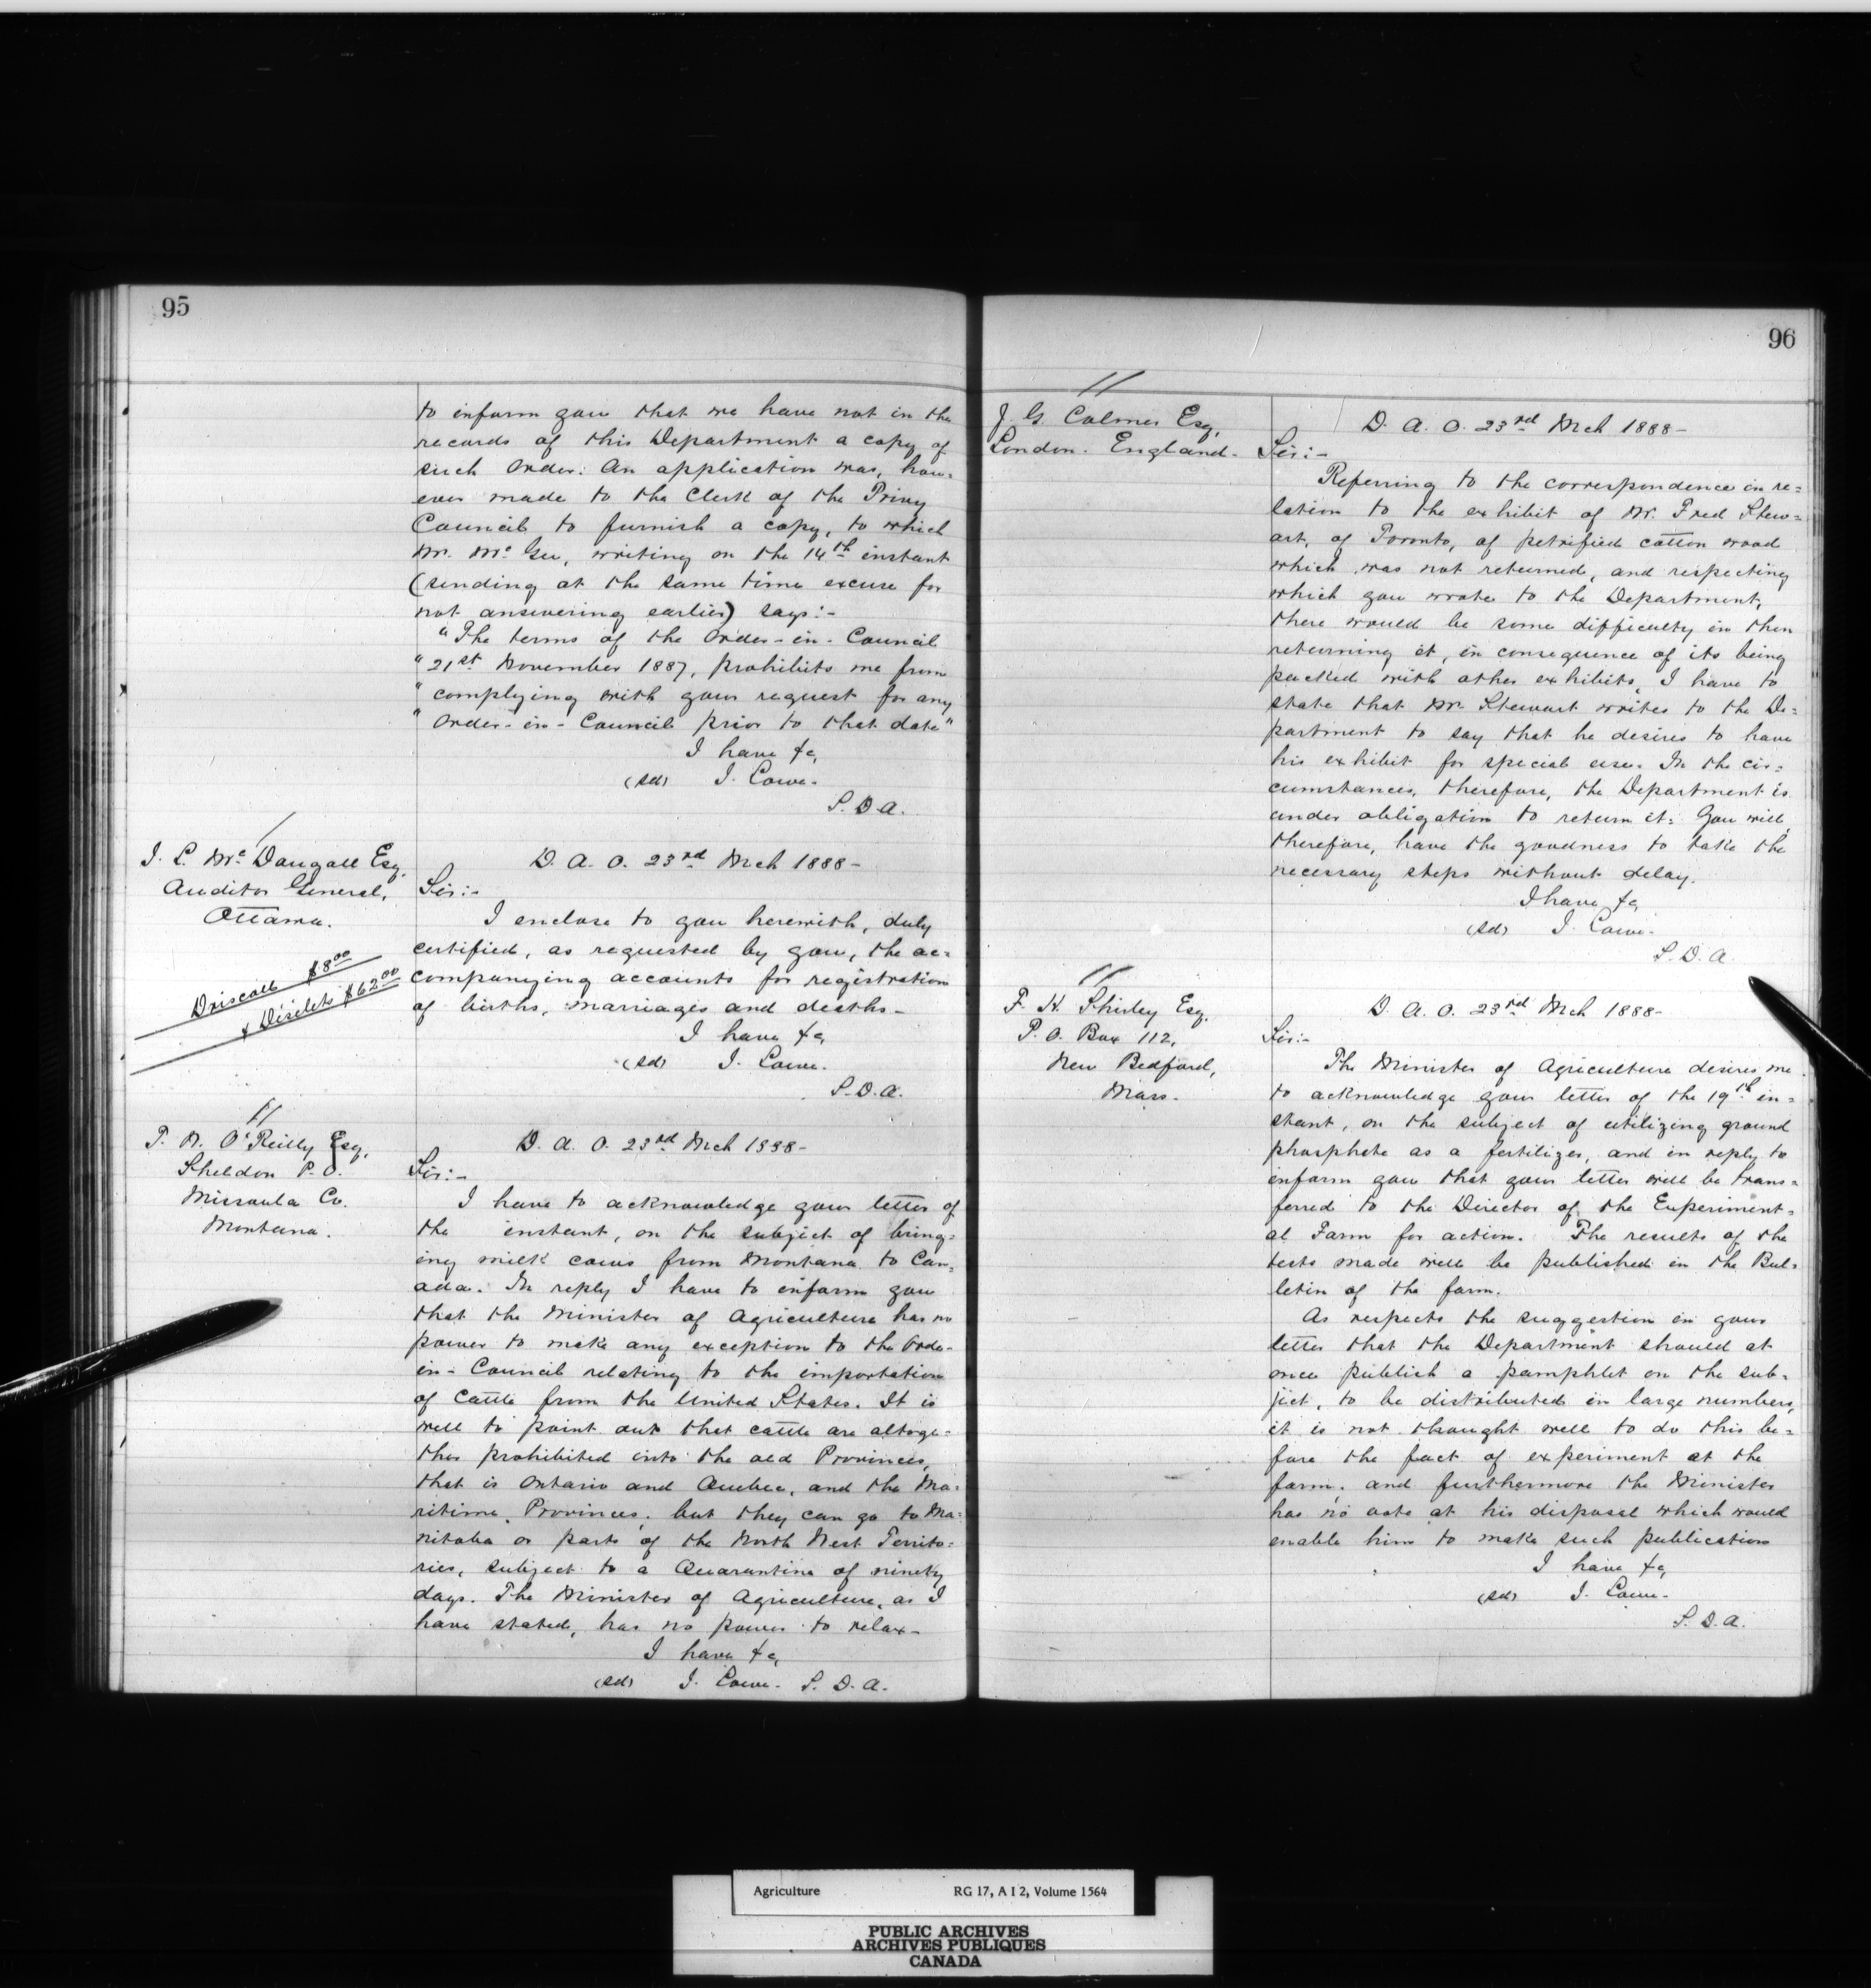 95
to inform you that we have not in the
records of this Department a copy of
such Order. An application was, how=
ever made to the Clerk of the Privy
Council to furnish a copy, to which
Mr. McGee, writing on the 14th instant
(sending at the same time excuse for
not answering earlier) says:-
"The terms of the Order-in-Council
"21st November 1887, prohibits me from
"complying with your request for any
"Order-in-Council prior to that date"
I have &c,
(sd) J. Lowe.
S. D. A.
J. L. McDougall Esq,
Auditor General,
Ottawa.
Driscoll $8.00
& Disilets $62.00
D. A. O. 23rd Mch 1888-
Sir:-
I enclose to you herewith, duly
certified, as requested by you, the ac=
companying accounts for registration
of births, marriages and deaths-
I have &c,
(sd) J. Lowe.
S. D. A.
T. N. O'Reilly Esq,
Sheldon P. O.
Missoula Co.
Montana.
D. A. O. 23rd Mch 1888-
Sir:-
I have to acknowledge your letter of
the instant, on the subject of bring=
ing milk cows from Montana to Can=
ada. In reply I have to inform you
that the Minister of Agriculture has no
power to make any exception to the Order-
in-Council relating to the importation
of Cattle from the United States. It is
well to point out that cattle are altoge=
ther prohibited into the old Provinces,
that is Ontario and Quebec, and the Ma=
ritime Provinces, but they can go to Ma=
nitoba or parts of the North West Territo=
ries, subject to a Quarantine of ninety
days. The Minister of Agriculture, as I
have stated, has no power to relax-
I have &c,
(sd) J. Lowe. S. D. A.
96
J. G. Colmer Esq,
London. England.
D. A. O. 23rd Mch 1888-
Sir:-
Referring to the correspondence in re=
lation to the exhibit of Mr. Fred Stew=
art, of Toronto, of petrified cotton wood
which was not returned, and respecting
which you wrote to the Department,
there would be some difficulty in then
returning it, in consequence of its being
packed with other exhibits, I have to
state that Mr. Stewart writes to the De=
partment to say that he desires to have
his exhibit for special use. In the cir=
cumstances, therefore, the Department is
under obligation to return it. You will,
therefore, have the goodness to take the
necessary steps without delay.
I have &c,
(sd) J. Lowe.
S. D. A.
F. H. Shirley Esq,
P. O. Box 112,
New Bedford,
Mass.
D. A. O. 23rd Mch 1888-
Sir:-
The Minister of Agriculture desires me
to acknowledge your letter of the 19th in=
stant, on the subject of utilizing ground
phosphate as a fertilizer, and in reply to
inform you that your letter will be trans=
ferred to the Director of the Experiment=
al Farm for action. The results of the
tests made will be published in the Bul=
letin of the farm.
As respects the suggestion in your
letter that the Department should at
once publish a pamphlet on the sub=
ject, to be distributed in large numbers,
it is not thought well to do this be=
fore the fact of experiment at the
farm; and furthermore the Minister
has no vote at his disposal which would
enable him to make such publication
I have &c,
(sd) J. Lowe.
S. D. A.
Agriculture RG 17, A I 2, Volume 1564
PUBLIC ARCHIVES
ARCHIVES PUBLIQUES
CANADA